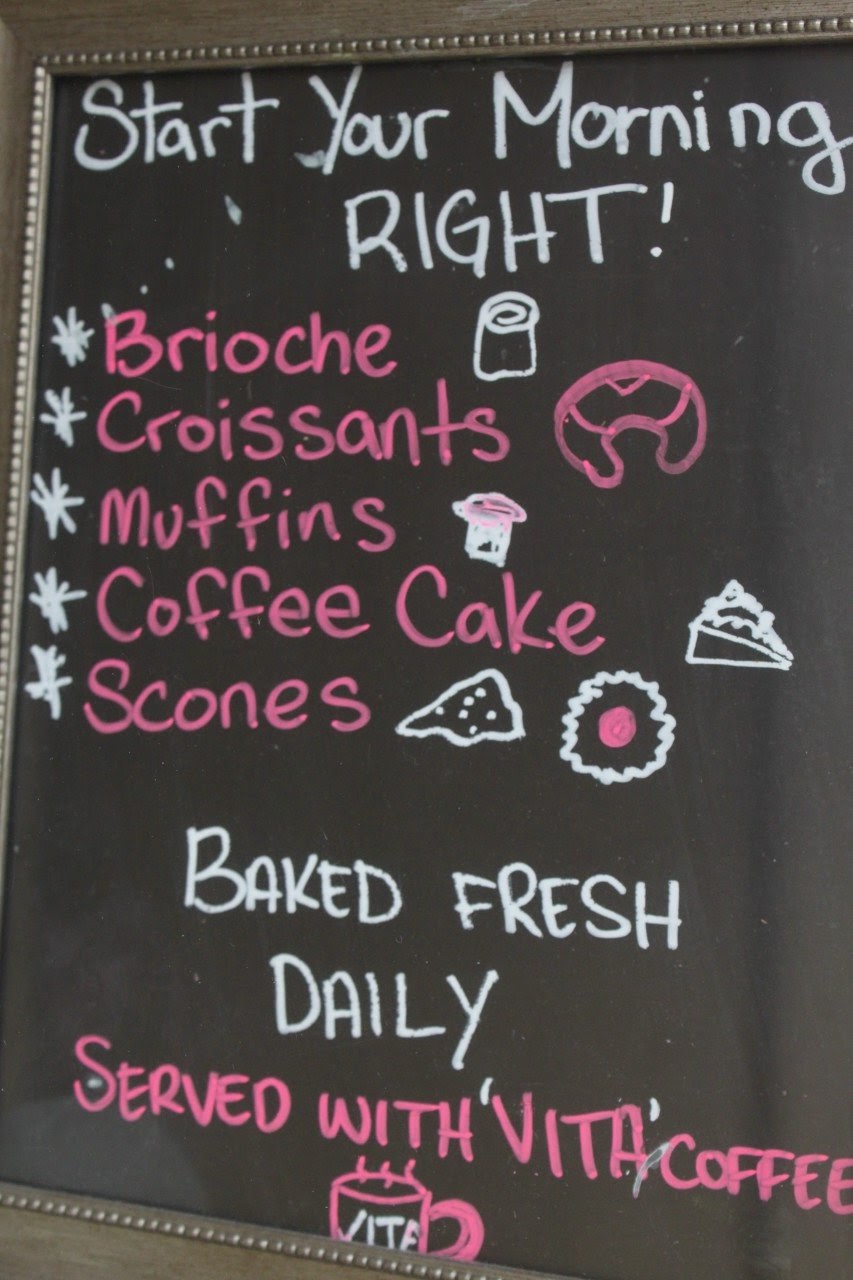 Start Your Morning
RIGHT!
* Brioche
* Croissants
* Muffins
* Coffee Cake
* Scones
BAKED FRESH
DAILY
SERVED WITH 'VITA' COFFEE
VITA